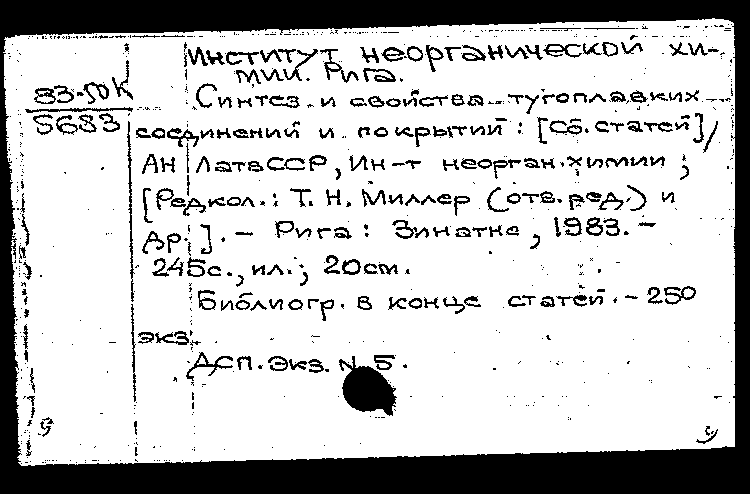 Институт неорганической хи-
мии. Рига.
83-50К
5683
Синтез и свойства тугоплавких
соединений и покрытий: [Сб. статей]/
АН ЛатвССР, Ин-т неорган. химии;
[Редкол.: Т. Н. Миллер (отв. ред.) и
др.]. – Рига: Зинатне, 1983. –
245с., ил.; 20см.
Библиогр. в конце статей. – 250
экз.
ДСП. Экз. N 5.